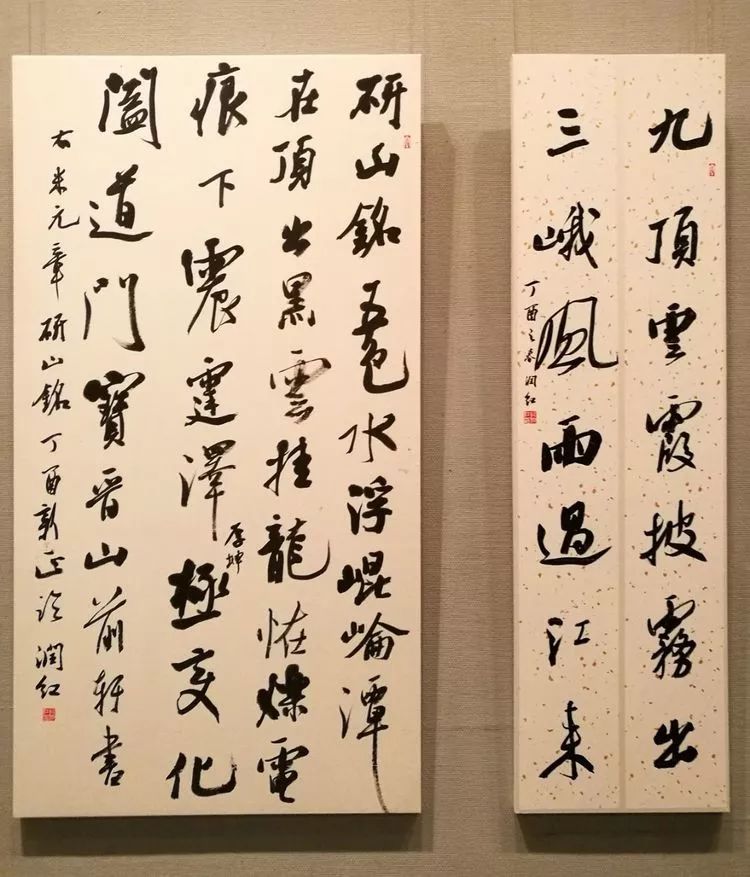 九頂雲霞披霧出
三峨風雨過江来
丁酉之春潤紅
研山銘五色水浮崐崘潭
在頂出黑雲挂龍恠爍電
痕下震霆澤厚坤極变化
闔道門寶晉山前軒書
右米元章研山銘丁酉新正臨潤紅